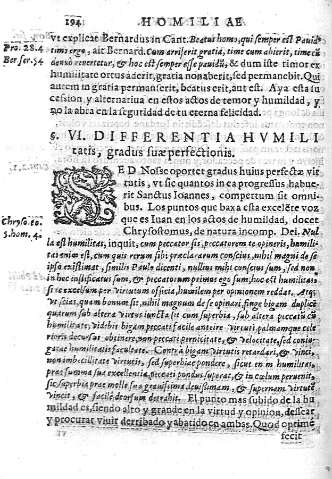 194. HOMILIAE
vt explicat Bernardus in Cant. Beatus homo, qui semper est Pauid
Pro. 28.4
timer ergo, ait Bernard. Cum arriserit gratia, time cum abierit, time cũ
Ber ser. 54
denuò reuertetur, & hoc est semper esse pauidũ, & dum iste timor ex
humilitate ortus àderit, gratia non aberit, sed permanebit. Qui
autem in gratia permanserit, beatus erit, aut est. Aya esta su
cession, y alternatiua en estos actos de temor y humildad, y
no abrà en la seguridad de tu eterna felicidad.
§. VI. DIFFERENTIA HVMILI
tatis, gradus suæ perfectionis.
SED Nosse oportet gradus huius perfectæ vir
tutis, vt sic quantos in ea progressus habue
rit Sanctus Ioannes, compertum sit omni
bus. Los puntos que baxa esta excelẽte voz
que es Iuan en los actos de humildad, docet
Chrysostomus, de natura incomp. Dei. Nul
Chryso. to.
5. hom. 4.
la est humilitas, inquit, cum peccator sis, peccatorem te opineris, humili-
tas enim est, cum quis rerum sibi præclararum conscius, nihil magni de se
ipso existimat, similis Paulo dicenti, nullius mihi conscius sum, sed non
in hoc iustificatus sum, & peccatorum primus ego sum, hoc est humilitas,
si te excelsum per virtutum officia, humilem per opinionem reddas,
vt scias, quam bonum sit, nihil magnum de se opinari, finge bigam duplicẽ
quarum sub altera virtus iuncta sit cum superbia, sub altera peccatũ cũ
humilitate, videbis bigam peccati facile anteire virtuti, palmamque cele
rioris decursus obtinere, non peccati pernicitate, & velocitate, sed coniu
gatæ humilitatis facultate. Contrà bigam virtutis retardari, & vinci,
non imbecillitate virtutis, sed superbiæ pondere, sicut enim humilitas,
præ summa sua excellentia, peccati pondus superat, & in cœlum peruenit,
sic superbia præ mole sua grauissima deorsum, & supernam virtutẽ
vincit, & facilè deorsum detrahit. El punto mas subido de la hu
mildad es, siendo alto y grande en la virtud y opinion, dessear
y procurar viuir derribado y abatido en ambas. Quod optime
fecit